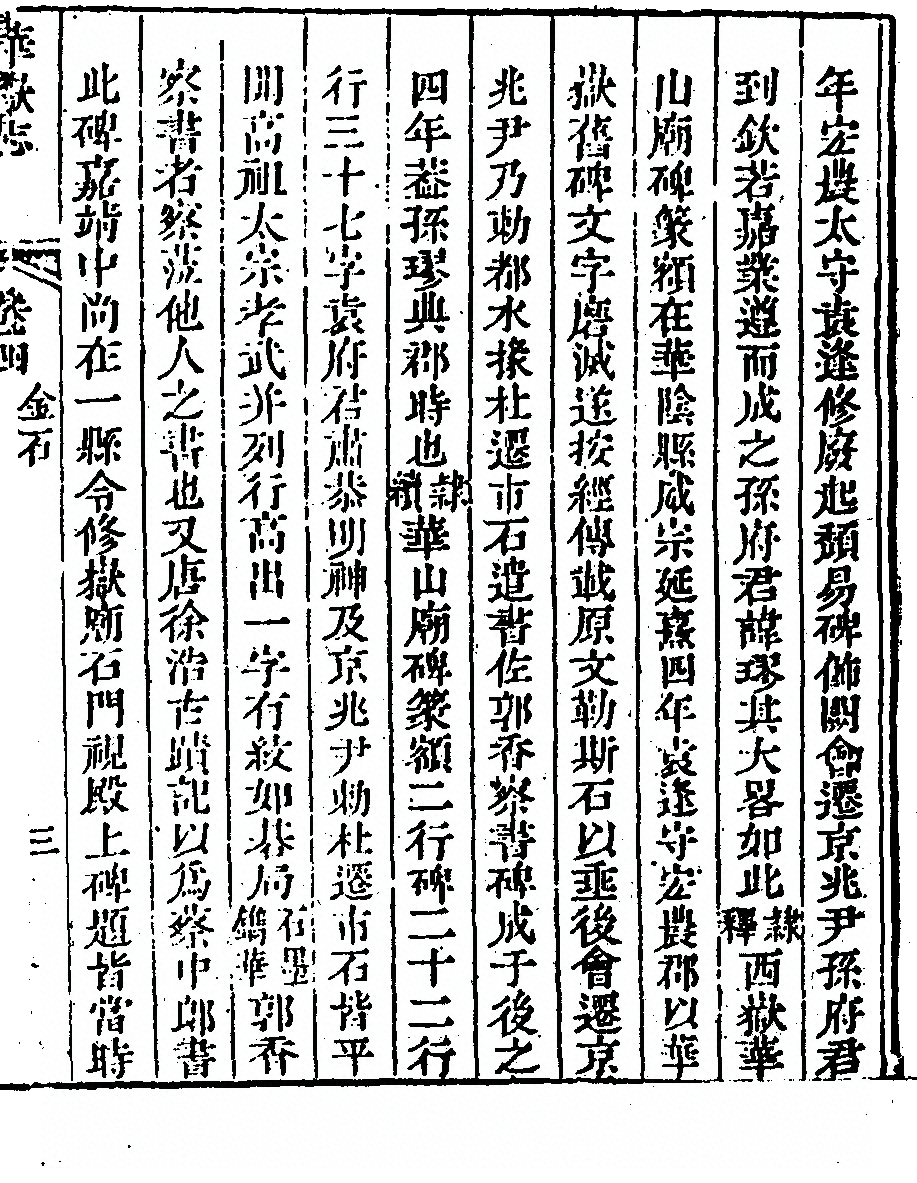 年宏農太守袁逢修廢起頹易碑飾闕會遷京兆尹孫府君
到欽若嘉業遵而成之孫府君諱璆其大畧如此隸釋西嶽華
山廟碑篆額在華陰縣威宗延熹四年袁逢守宏農郡以華
嶽舊碑文字磨滅遂按經傳載原文勒斯石以垂後會遷京
兆尹乃勅都水掾杜遷市石遣書佐郭香察書碑成于後之
四年葢孫璆典郡時也隸續華山廟碑篆額二行碑二十二行
行三十七字袁府君肅恭明神及京兆尹勅杜遷市石皆平
闕高祖太宗孝武并列行高出一字有紋如棊局石墨鐫華郭香
察書者察蒞他人之書也又唐徐浩古蹟記以爲蔡中郎書
此碑嘉靖中尚在一縣令修嶽廟石門視殿上碑題皆當時
華嶽志
卷四
金石
三